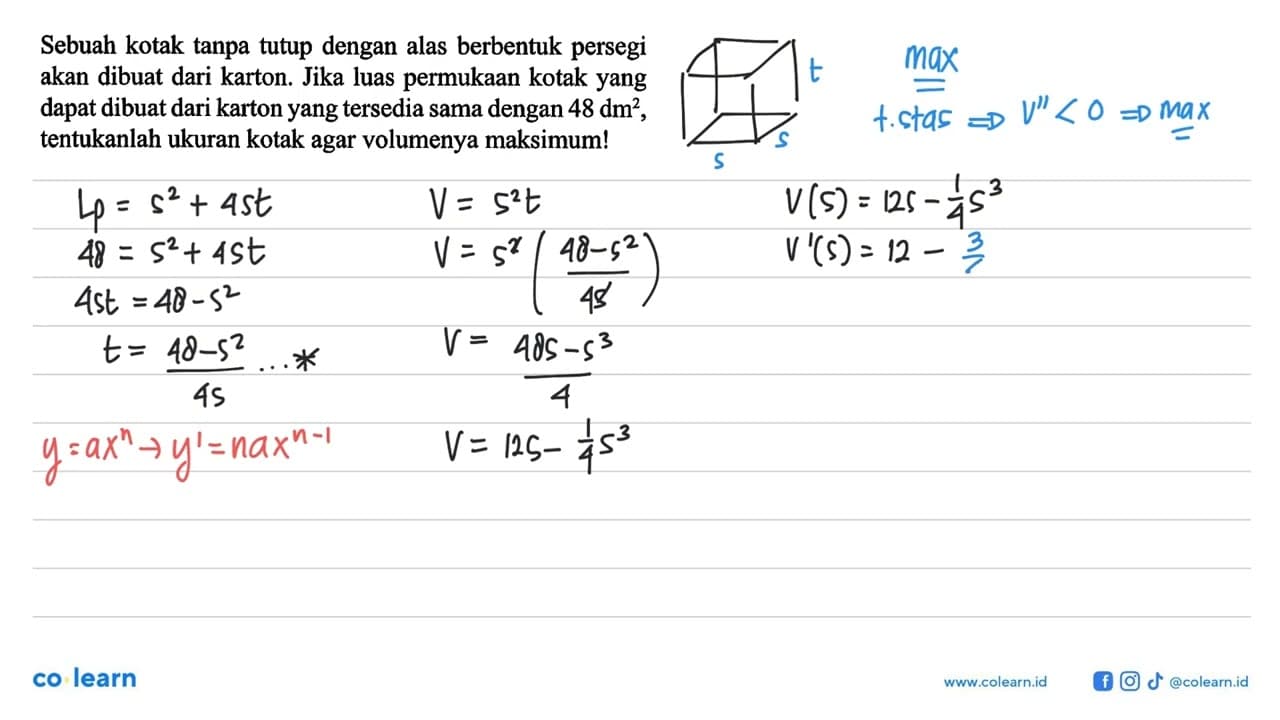 Sebuah kotak tanpa tutup dengan alas berbentuk persegi
akan dibuat dari karton. Jika luas permukaan kotak yang
dapat dibuat dari karton yang tersedia sama dengan 48 dm²,
tentukanlah ukuran kotak agar volumenya maksimum!
t
s
s
max
t.stas ⇒ V'' < 0 ⇒ max
Lp = s² + 4st
48 = s² + 4st
4st = 48 - s²
t = (48 - s²)/4s ...*
y = axⁿ → y' = naxⁿ⁻¹
V = s²t
V = s² ((48 - s²)/4s)
V = (48s - s³)/4
V = 12s - 1/4 s³
V(s) = 12s - 1/4 s³
V'(s) = 12 - 3/
co learn
www.colearn.id
@colearn.id